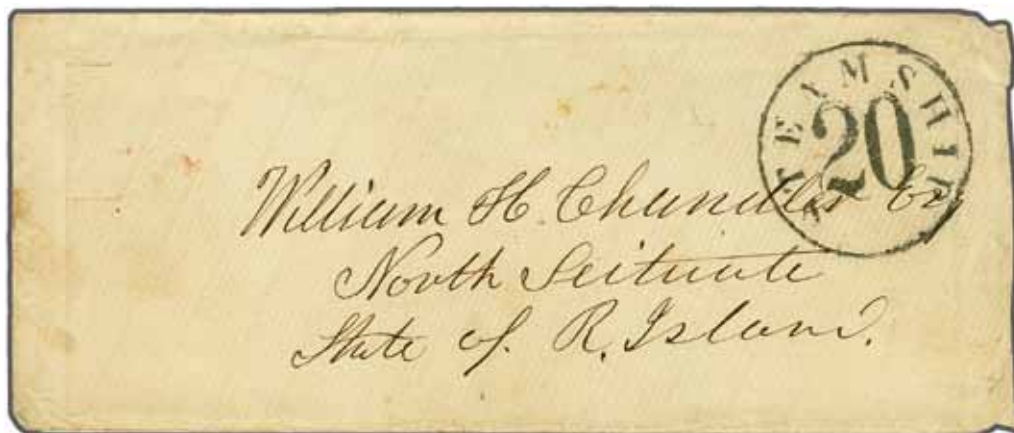 STEAMSHIP
20
William H. Chandler Esq
North Scituate
State of R. Island.